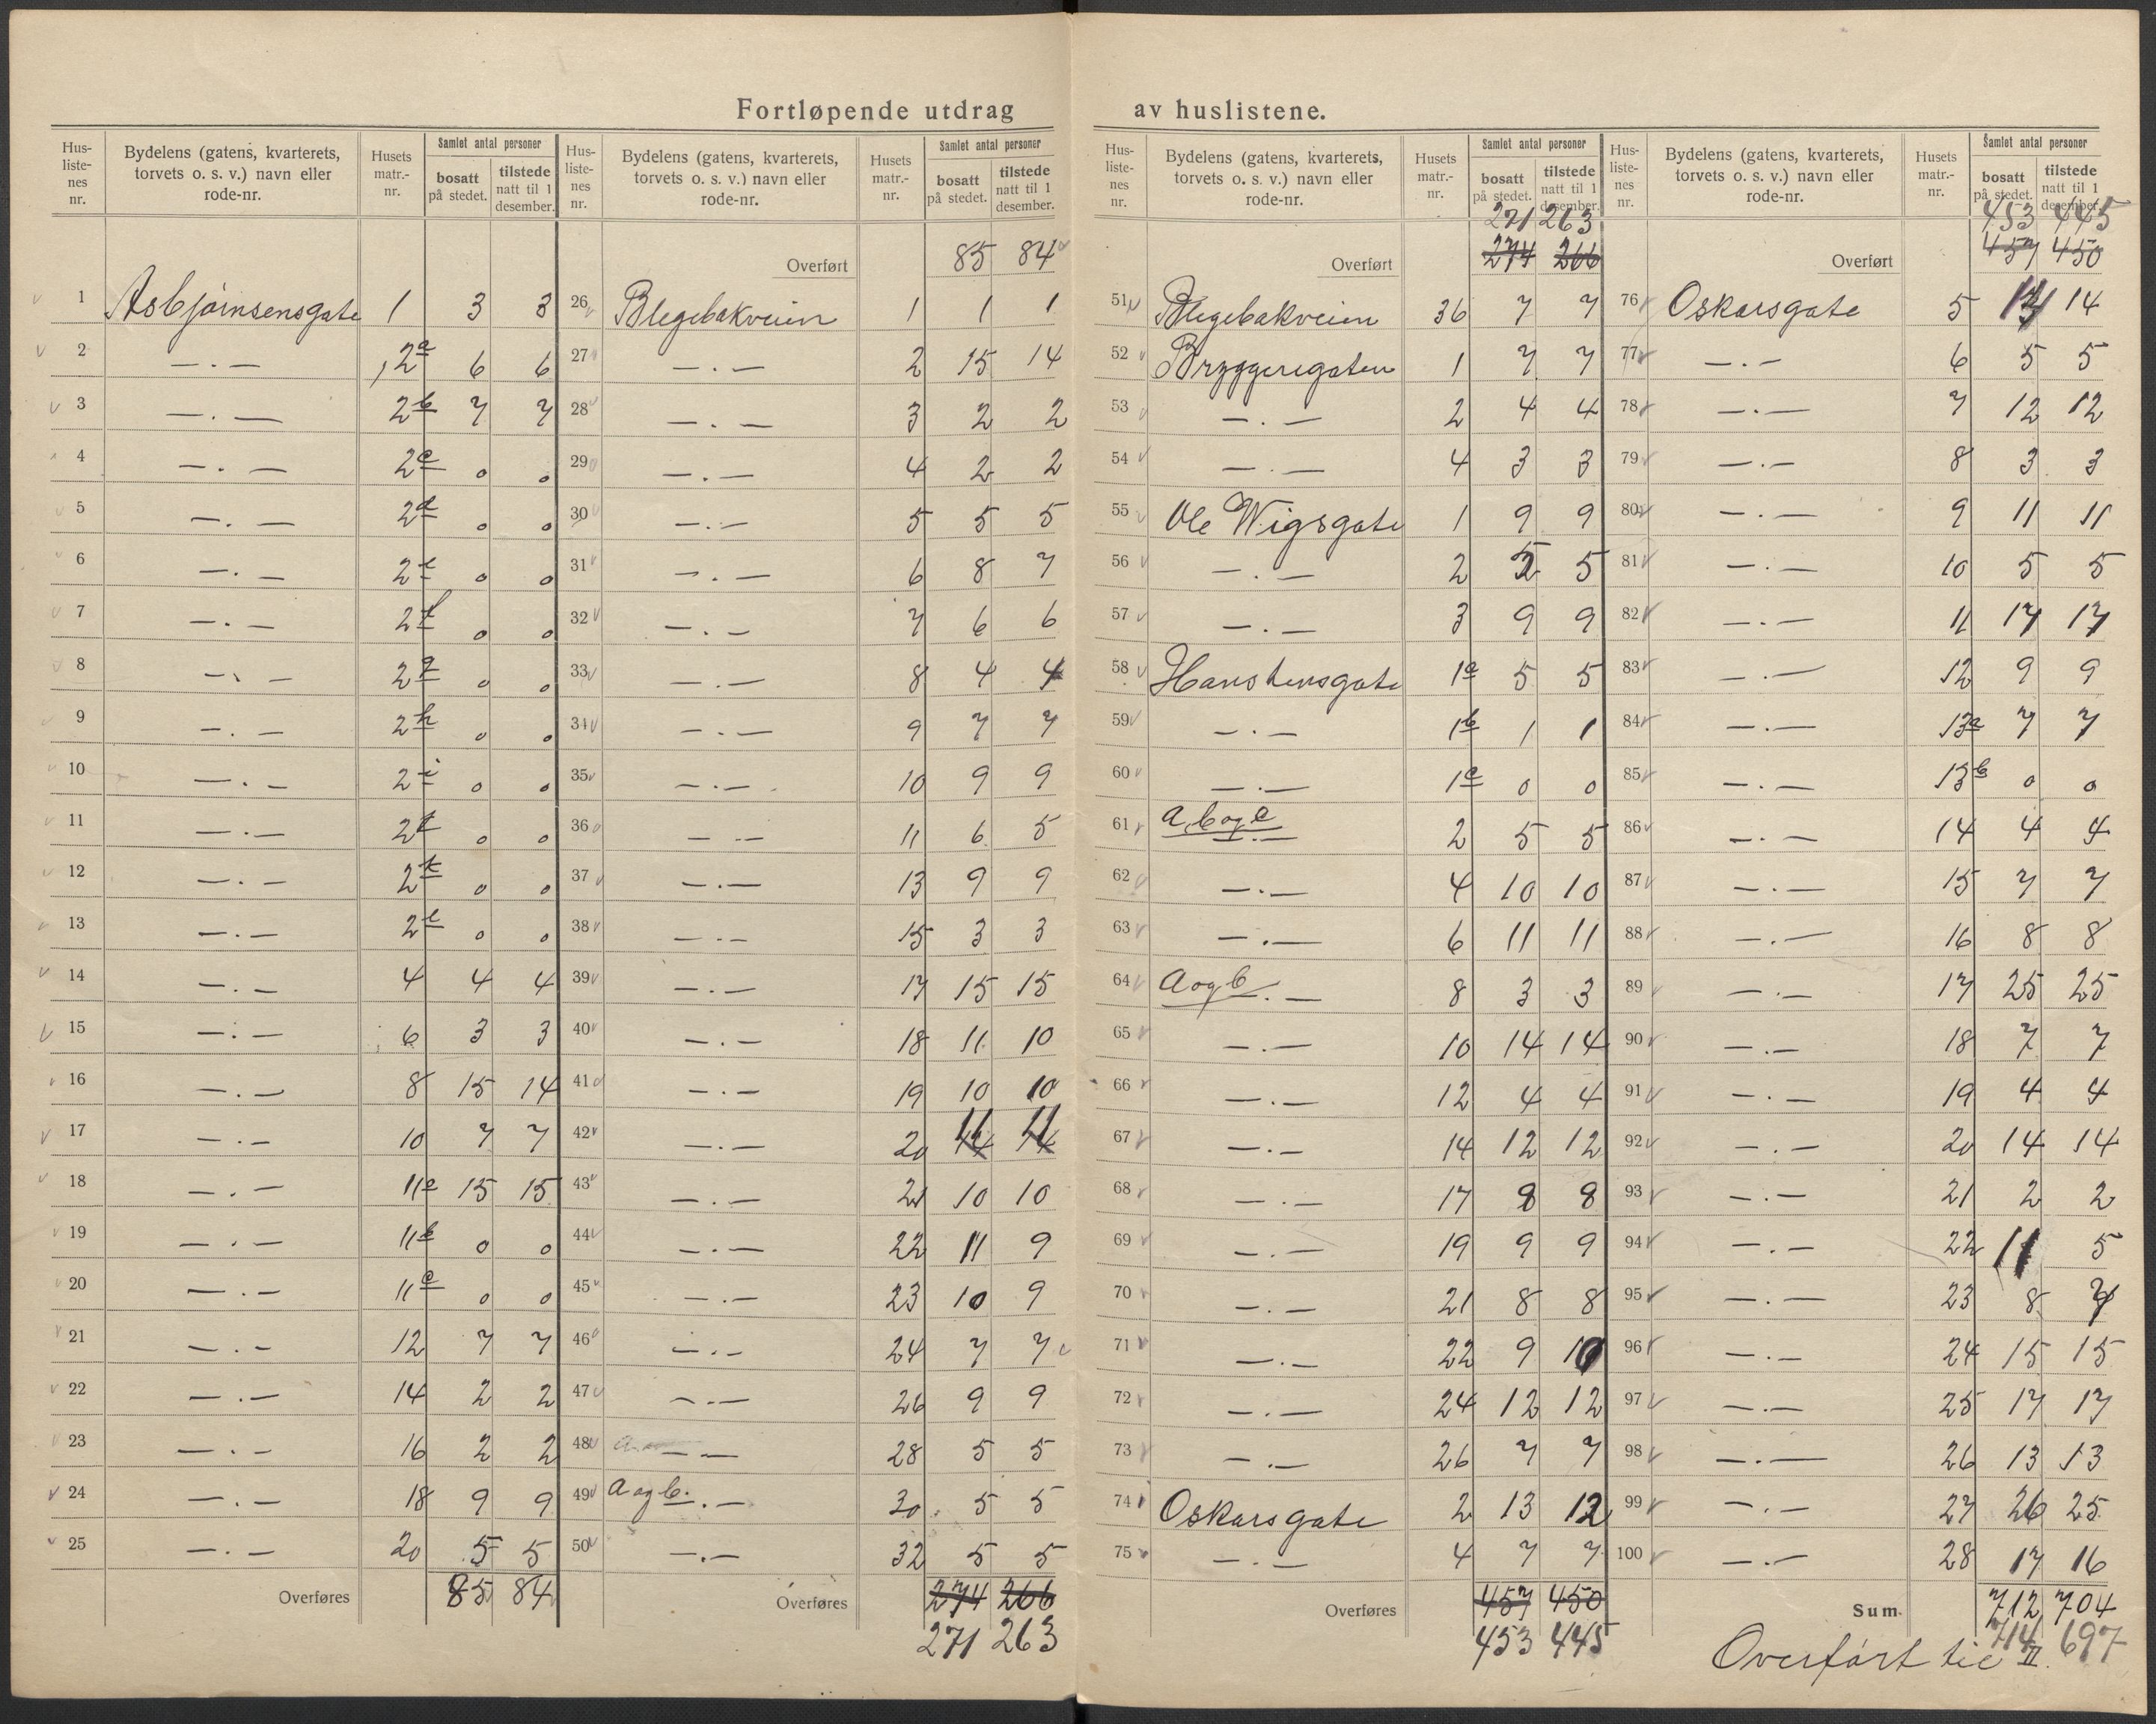 Fortløpende utdrag av huslistene.
Hus-listenes nr. Bydelens (gatens, kvarterets, torvets o. s. v.) navn eller rode-nr. Husets matr.-nr. Samlet antal personer bosatt på stedet. tilstede natt til 1 desember.
1 Asbjørnsensgate 1 3 3
2 —.— 2a 6 6
3 —.— 2b 7 7
4 —.— 2c 0 0
5 —.— 2d 0 0
6 —.— 2e 0 0
7 —.— 2f 0 0
8 —.— 2g 0 0
9 —.— 2h 0 0
10 —.— 2i 0 0
11 —.— 2 0 0
12 —.— 2k 0 0
13 —.— 2l 0 0
14 —.— 4 4 4
15 —.— 6 3 3
16 —.— 8 15 14
17 —.— 10 7 7
18 —.— 11a 15 15
19 —.— 11b 0 0
20 —.— 11c 0 0
21 —.— 12 7 7
22 —.— 14 2 2
23 —.— 16 2 2
24 —.— 18 9 9
25 —.— 20 5 5
Overføres 85 84
Hus-listenes nr. Bydelens (gatens, kvarterets, torvets o. s. v.) navn eller rode-nr. Husets matr.-nr. Samlet antal personer bosatt på stedet. tilstede natt til 1 desember.
Overført 85 84
26 Blegebakveien 1 1 1
27 —.— 2 15 14
28 —.— 3 2 2
29 —.— 4 2 2
30 —.— 5 5 5
31 —.— 6 8 7
32 —.— 7 6 6
33 —.— 8 4 4
34 —.— 9 7 7
35 —.— 10 9 9
36 —.— 11 6 5
37 —.— 13 9 9
38 —.— 15 3 3
39 —.— 17 15 15
40 —.— 18 11 10
41 —.— 19 10 10
42 —.— 20 11 11
43 —.— 21 10 10
44 —.— 22 11 9
45 —.— 23 10 9
46 —.— 24 7 7
47 —.— 26 9 9
48 —.— 28 5 5
49 a og b. —.— 30 5 5
50 —.— 32 5 5
Overføres 274 266
271 263
Hus-listenes nr. Bydelens (gatens, kvarterets, torvets o. s. v.) navn eller rode-nr. Husets matr.-nr. Samlet antal personer bosatt på stedet. tilstede natt til 1 desember.
271 263
Overført 274 266
51 Blegebakveien 36 7 7
52 Bryggerigaten 1 7 7
53 —.— 2 4 4
54 —.— 4 3 3
55 Ole Wigsgate 1 9 9
56 —.— 2 5 5
57 —.— 3 9 9
58 Hanstensgate 1a 5 5
59 —.— 1b 1 1
60 —.— 1c 0 0
61 a, b og c —.— 2 5 5
62 —.— 4 10 10
63 —.— 6 11 11
64 a og b —.— 8 3 3
65 —.— 10 14 14
66 —.— 12 4 4
67 —.— 14 12 12
68 —.— 17 8 8
69 —.— 19 9 9
70 —.— 21 8 8
71 —.— 22 9 10
72 —.— 24 12 12
73 —.— 26 7 7
74 Oskarsgate 2 13 12
75 —.— 4 7 7
Overføres 457 450
453 445
Hus-listenes nr. Bydelens (gatens, kvarterets, torvets o. s. v.) navn eller rode-nr. Husets matr.-nr. Samlet antal personer bosatt på stedet. tilstede natt til 1 desember.
453 445
Overført 457 450
76 Oskarsgate 5 14
77 —.— 6 5 5
78 —.— 7 12 12
79 —.— 8 3 3
80 —.— 9 11 11
81 —.— 10 5 5
82 —.— 11 17 17
83 —.— 12 9 9
84 —.— 13a 7 7
85 —.— 13b 0 0
86 —.— 14 4 4
87 —.— 15 7 7
88 —.— 16 8 8
89 —.— 17 25 25
90 —.— 18 7 7
91 —.— 19 4 4
92 —.— 20 14 14
93 —.— 21 2 2
94 —.— 22 11 5
95 —.— 23 8 7
96 —.— 24 15 15
97 —.— 25 17 17
98 —.— 26 13 13
99 —.— 27 26 25
100 —.— 28 17 16
Sum 712 704
714 697
Overført til II.